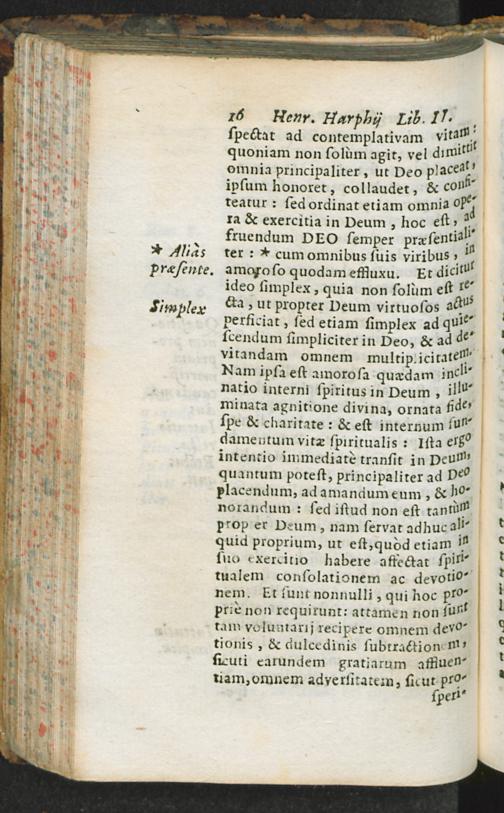 16 Henr. Harphij Lib. II.
spectat ad contemplativam vitam:
quoniam non solùm agit, vel dimittit
omnia principaliter, ut Deo placeat,
ipsum honoret, collaudet, & confi-
teatur: sed ordinat etiam omnia ope-
ra & exercitia in Deum, hoc est, ad
fruendum DEO semper præsentiali-
ter: * cum omnibus suis viribus, in
amoroso quodam effluxu. Et dicitur
ideo simplex, quia non solùm est re-
cta, ut propter Deum virtuosos actus
perficiat, sed etiam simplex ad quie-
scendum simpliciter in Deo, & ad de-
vitandam omnem multiplicitatem.
Nam ipsa est amorosa quædam incli-
natio interni spiritus in Deum, illu-
minata agnitione divina, ornata fide,
spe & charitate: & est internum fun-
damentum vitæ spiritualis: Ista ergo
intentio immediatè transit in Deum,
quantum potest, principaliter ad Deo
placendum, ad amandum eum, & ho-
norandum: sed istud non est tantùm
prop er Deum, nam servat adhuc ali-
quid proprium, ut est, quòd etiam in
suo exercitio habere affectat spiri-
tualem consolationem ac devotio-
nem. Et sunt nonnulli, qui hoc pro-
priè non requirunt: attamen non sunt
tam voluntarij recipere omnem devo-
tionis, & dulcedinis subtraction m,
sicuti earundem gratiarum affluen-
tiam, omnem adversitatem, sicut pro-
speri-
* Aliàs
præsente.
Simplex